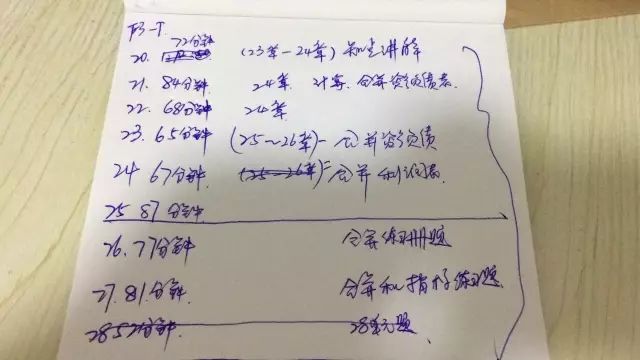 F3-下
72分钟
20. (23章-24章) 知识讲解
21. 84分钟 24章 计算. 合并资产负债表.
22. 68分钟 24章
23. 65分钟 (25~26章)- 合并资产负债
24 67分钟. (25-26章)= 合并利润表
25 87分钟
26. 77分钟 合并练习册题
27. 81分钟. 合并和指标练习题.
28 52分钟. 28单元题